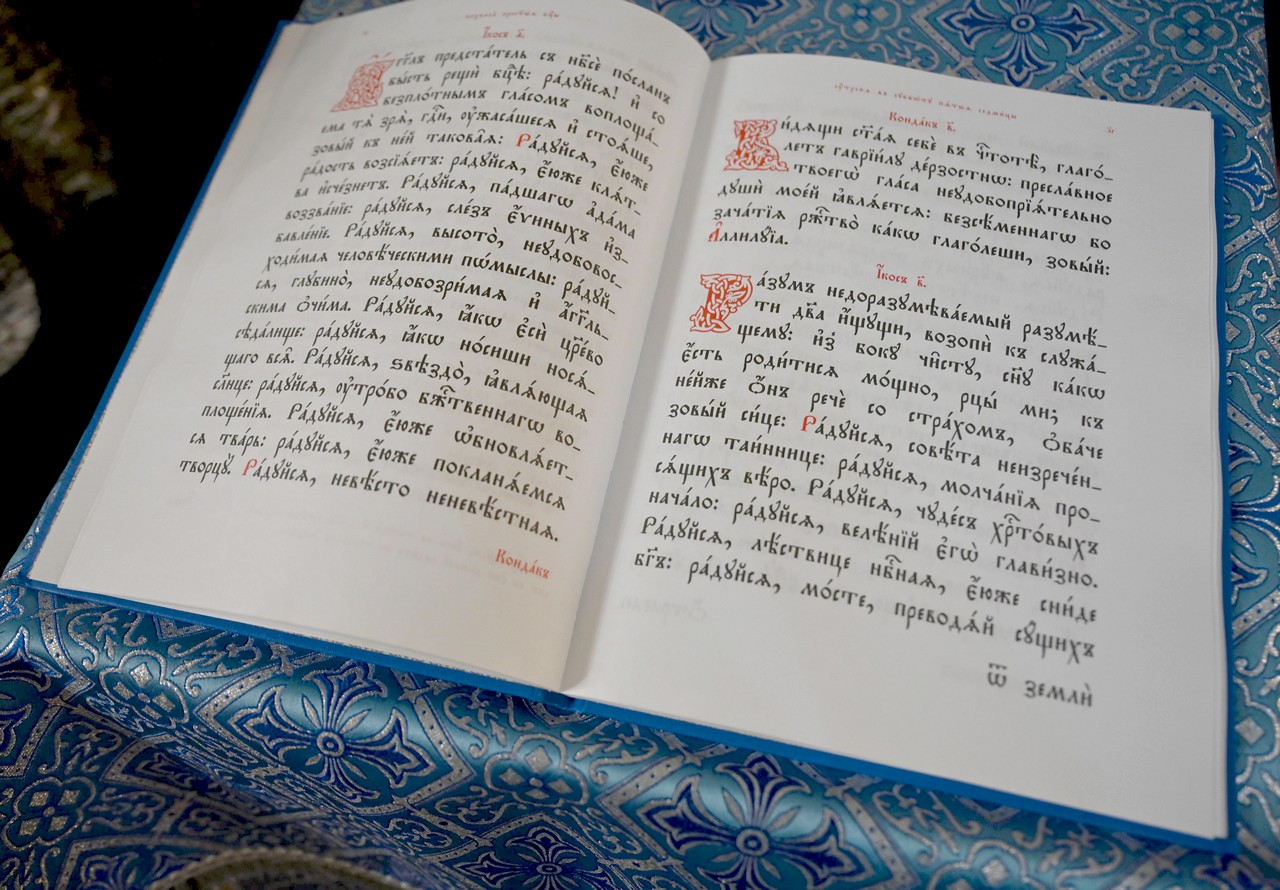 І҆́косъ а҃.
А҆́гг҃лъ предста́тель съ нб҃сѐ по́сланъ
бы́сть рещѝ бц҃ѣ: ра́дꙋйсѧ! и҆ со
безпло́тнымъ гла́сомъ воплоща́-
ема тѧ̀ зрѧ̀, гд҇и, ᲂу҆жаса́шесѧ и҆ стоѧ́ше,
зовы́й къ не́й такова̑ѧ: Ра́дꙋйсѧ, є҆́юже
ра́дость возсїѧ́етъ: ра́дꙋйсѧ, є҆́юже клѧ́т-
ва и҆сче́знетъ. Ра́дꙋйсѧ, па́дшагѡ а҆да́ма
воззва́нїе: ра́дꙋйсѧ, сле́зъ є҆́ѵиныхъ и҆з-
бавле́нїе. Ра́дꙋйсѧ, высото̀, неꙋдобовос-
ходи́маѧ человѣ́ческими по́мыслы: ра́дꙋй-
сѧ, глꙋбино̀, неꙋдобозри́маѧ и҆ а҆́гг҃ль-
скима ѻ҆чи́ма. Ра́дꙋйсѧ, ꙗ҆́кѡ є҆сѝ цр҃е́во
сѣда́лище: ра́дꙋйсѧ, ꙗ҆́кѡ но́сиши носѧ́-
щаго всѧ̑. Ра́дꙋйсѧ, ѕвѣздо̀, ꙗ҆влѧ́ющаѧ
сл҃нце: ра́дꙋйсѧ, ᲂу҆тро́бо бж҃твеннагѡ во-
площе́нїѧ. Ра́дꙋйсѧ, є҆́юже ѡ҆бновлѧ́ет-
сѧ тва́рь: ра́дꙋйсѧ, є҆́юже покланѧ́емсѧ
творцꙋ̀. Ра́дꙋйсѧ, невѣ́сто неневѣ́стнаѧ.
Конда́къ
Конда́къ в҃.
Ви́дѧщи ст҃а́ѧ себѐ въ чт҇отѣ̀, глаго́-
летъ гаврїи́лꙋ де́рзостнѡ: пресла́вное
твоегѡ̀ гла́са неꙋдобопрїѧ́тельно
дꙋшѝ мое́й ꙗ҆влѧ́етсѧ: безсѣ́меннагѡ бо
зача́тїѧ ржⷭ҇тво̀ ка́кѡ глаго́леши, зовы́й:
А҆ллилꙋ́їа.
І҆́косъ в҃.
Ра́зꙋмъ недоразꙋмѣва́емый разꙋмѣ́-
ти дв҃а и҆́щꙋщи, возопѝ къ слꙋжа́-
щемꙋ: и҆з̾ бокꙋ̀ чи̑стꙋ, сн҃ꙋ ка́кѡ
є҆́сть роди́тисѧ мо́щно, рцы́ ми; къ
не́йже ѻ҆́нъ речѐ со стра́хомъ, ѻ҆ба́че
зовы́й си́це: Ра́дꙋйсѧ, совѣ́та неизрече́н-
нагѡ таи́ннице: ра́дꙋйсѧ, молча́нїѧ про-
сѧ́щихъ вѣ́ро. Ра́дꙋйсѧ, чꙋде́съ хрⷭ҇то́выхъ
нача́ло: ра́дꙋйсѧ, велѣ́нїй є҆гѡ̀ глави́зно.
Ра́дꙋйсѧ, лѣ́ствице нб҃наѧ, є҆́юже сни́де
бг҃ъ: ра́дꙋйсѧ, мо́сте, преводѧ́й сꙋ́щихъ
ѿ землѝ